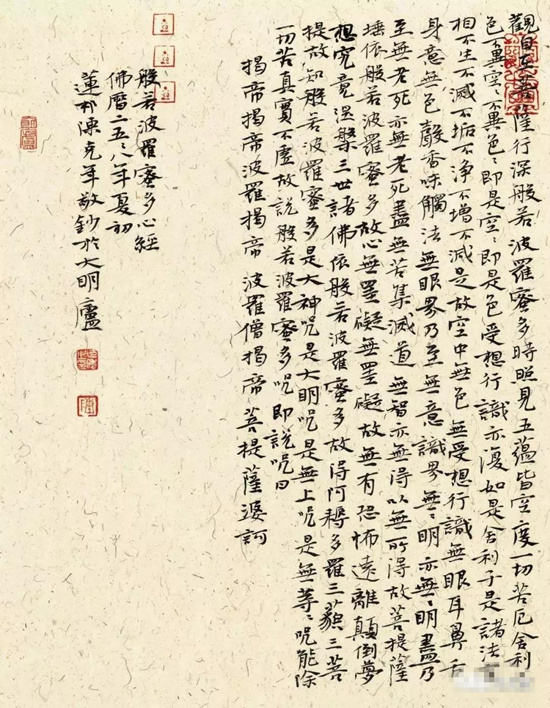 觀自在菩薩行深般若波羅蜜多時照見五蘊皆空度一切苦厄舍利
色不異空〻不異色〻即是空〻即是色受想行識亦復如是舍利子是諸法
相不生不滅不垢不淨不增不減是故空中無色無受想行識無眼耳鼻舌
身意無色聲香味觸法無眼界乃至無意識界無〻明亦無〻明盡乃
至無老死亦無老死盡無苦集滅道無智亦無得以無所得故菩提薩
埵依般若波羅蜜多故心無罣礙無罣礙故無有恐怖遠離顛倒夢
想究竟涅槃三世諸佛依般若波羅蜜多故得阿耨多羅三藐三菩
提故知般若波羅蜜多是大神咒是大明咒是無上咒是無等〻咒能除
一切苦真實不虛故說般若波羅蜜多咒即說咒曰
揭帝揭帝波羅揭帝 波羅僧揭帝 菩提薩婆訶
般若波羅蜜多心經
佛曆二五〻八年夏初
蓮邨陳克年敬鈔於大明廬